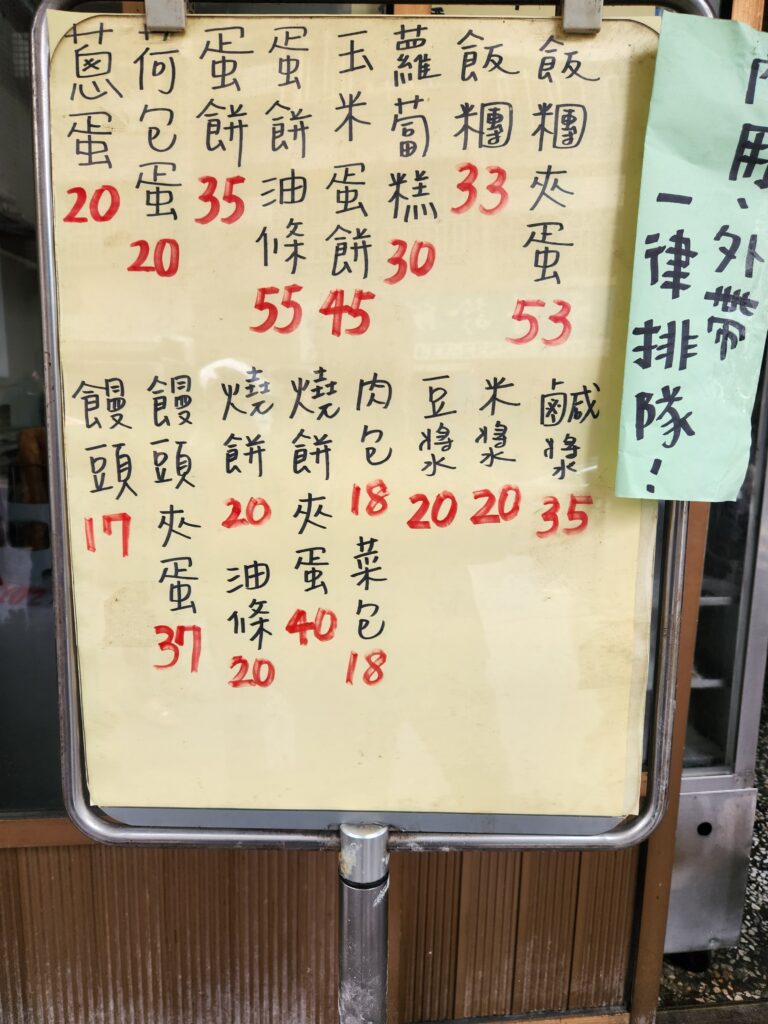 內用、外帶
一律排隊！
飯糰夾蛋 53
飯糰 33
蘿蔔糕 30
玉米蛋餅 45
蛋餅油條 55
蛋餅 35
荷包蛋 20
蔥蛋 20
鹹漿 35
米漿 20
豆漿 20
肉包 18
菜包 18
燒餅夾蛋 40
燒餅 20
油條 20
饅頭夾蛋 37
饅頭 17